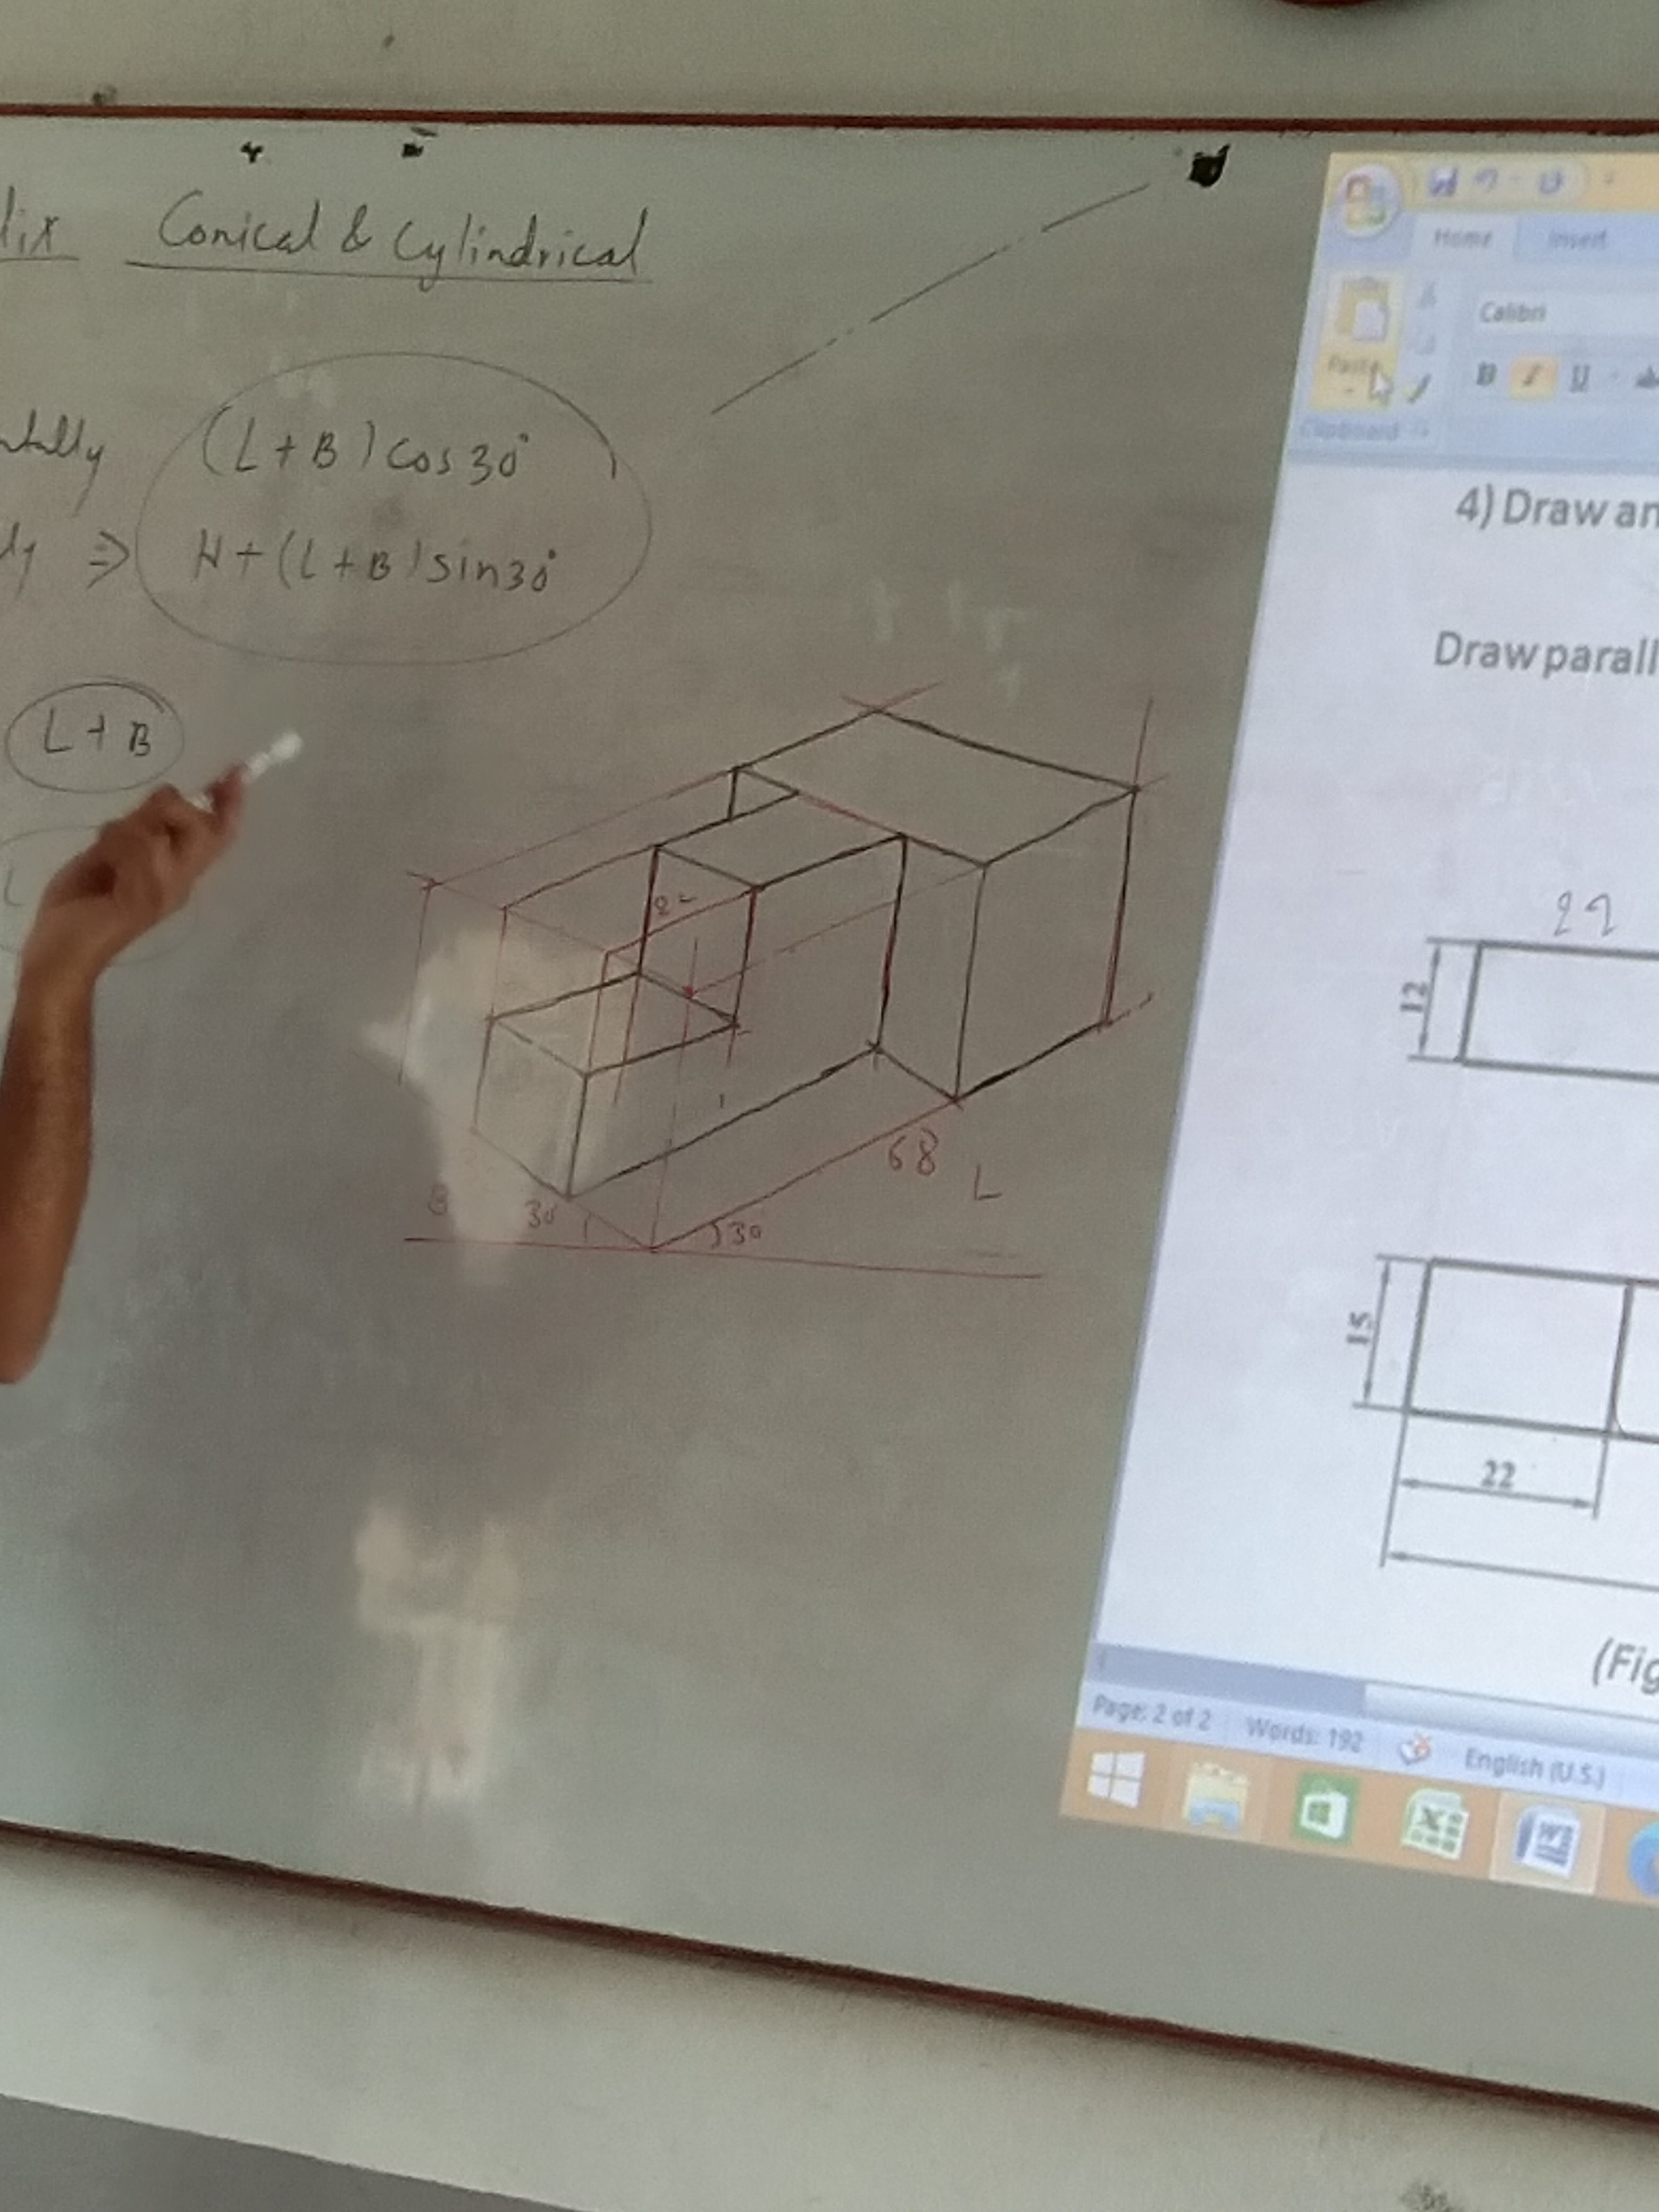 Conical & Cylindrical
(L+B) cos30°
⇒ H+(L+B) sin30°
L+B
L
22
68
L
B
30
30
Home Insert
Calibri
Paste
B I U
Clipboard
4) Draw an
Draw parall
22
12
15
22
(Fig
Page: 2 of 2 Words: 192 English (U.S.)